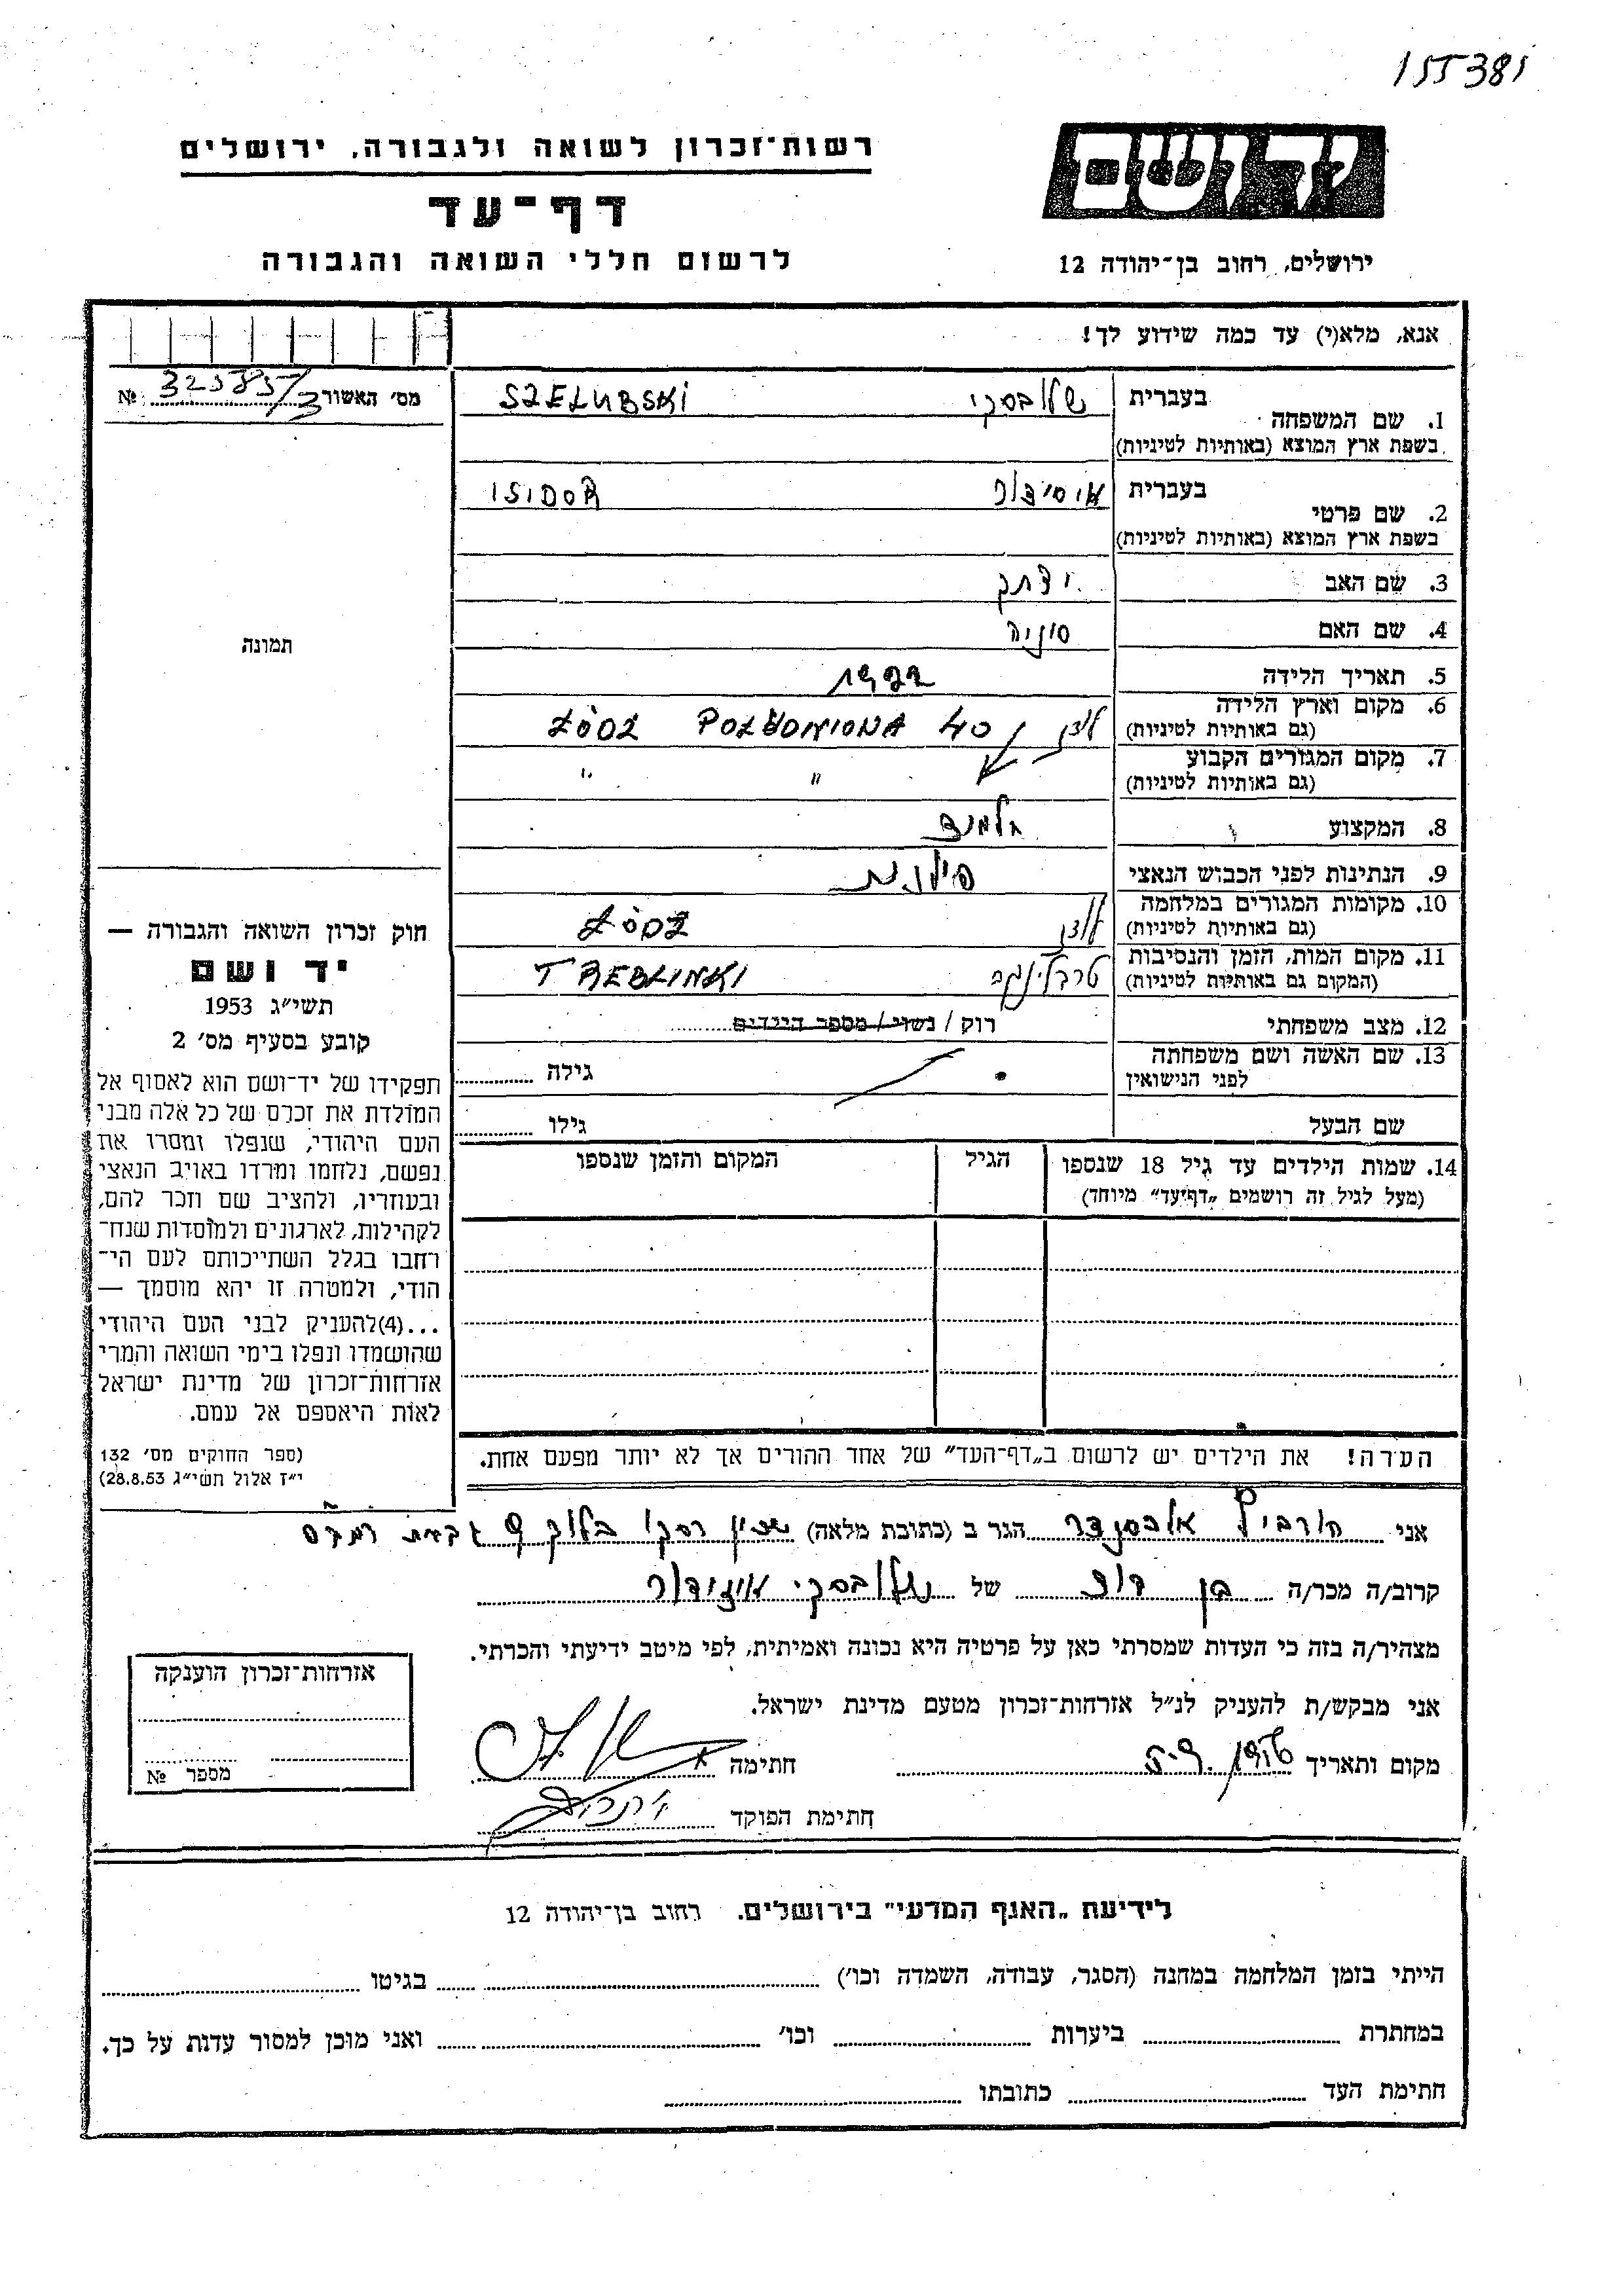 155381
רשות־זכרון לשואה ולגבורה, ירושלים
דף־עד
לרשום חללי השואה והגבורה
יד ושם
ירושלים, רחוב בן־יהודה 12
אנא, מלא(י) עד כמה שידוע לך!
מס׳ האשור № 325857/3
1. שם המשפחה בעברית שלובסקי SZEŁUBSKI
בשפת ארץ המוצא (באותיות לטיניות)
2. שם פרטי בעברית איסידור ISIDOR
בשפת ארץ המוצא (באותיות לטיניות)
3. שם האב יצחק
4. שם האם סוניה
תמונה
5. תאריך הלידה 1922
6. מקום וארץ הלידה לודז ŁÓDZ POŁUDNIOWA 40
(גם באותיות לטיניות)
7. מקום המגורים הקבוע " "
(גם באותיות לטיניות)
8. המקצוע תלמיד
9. הנתינות לפני הכבוש הנאצי פולנית
10. מקומות המגורים במלחמה לודז ŁÓDZ
(גם באותיות לטיניות)
11. מקום המות, הזמן והנסיבות טרבלינקה TREBLINKI
(המקום גם באותיות לטיניות)
12. מצב משפחתי רוק / נשוי / מספר הילדים
13. שם האשה ושם משפחתה גילה
לפני הנישואין
שם הבעל גילו
14. שמות הילדים עד גיל 18 שנספו הגיל המקום והזמן שנספו
(מעל לגיל זה רושמים „דף־עד״ מיוחד)
חוק זכרון השואה והגבורה —
יד ושם
תשי״ג 1953
קובע בסעיף מס׳ 2
תפקידו של יד־ושם הוא לאסוף אל
המולדת את זכרם של כל אלה מבני
העם היהודי, שנפלו ומסרו את
נפשם, נלחמו ומרדו באויב הנאצי
ובעוזריו, ולהציב שם וזכר להם,
לקהילות, לארגונים ולמוסדות שנח־
רחבו בגלל השתייכותם לעם הי־
הודי, ולמטרה זו יהא מוסמך —
...(4)להעניק לבני העם היהודי
שהושמדו ונפלו בימי השואה והמרי
אזרחות־זכרון של מדינת ישראל
לאות היאספם אל עמם.
(ספר החוקים מס׳ 132
י״ז אלול תשי״ג 28.8.53)
הערה! את הילדים יש לרשום ב„דף־העד״ של אחד ההורים אך לא יותר מפעם אחת.
אני הורביץ אלכסנדר הגר ב (כתובת מלאה) שכון רסקו בלוק 9
קרוב/ה מכר/ה בן דוד של שלובסקי איזידור
מצהיר/ה בזה כי העדות שמסרתי כאן על פרטיה היא נכונה ואמיתית, לפי מיטב ידיעתי והכרתי.
אני מבקש/ת להעניק לנ״ל אזרחות־זכרון מטעם מדינת ישראל.
מקום ותאריך חתימה
חתימת הפוקד
אזרחות־זכרון הוענקה
מספר №
לידיעת „האגף המדעי״ בירושלים. רחוב בן־יהודה 12
הייתי בזמן המלחמה במחנה (הסגר, עבודה, השמדה וכו׳) בגיטו
במחתרת ביערות וכו׳ ואני מוכן למסור עדות על כך.
חתימת העד כתובתו